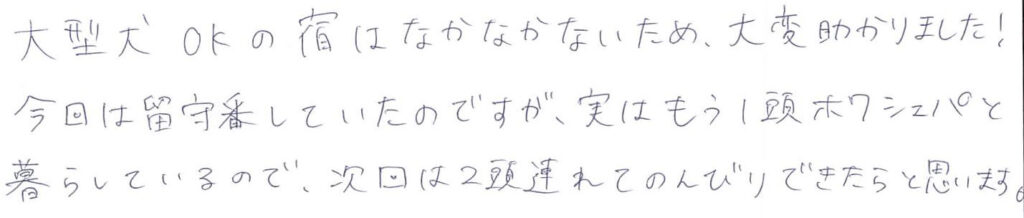 大型犬OKの宿はなかなかないため、大変助かりました！
今回は留守番していたのですが、実はもう1頭ホワシェパと
暮らしているので、次回は2頭連れてのんびりできたらと思います。